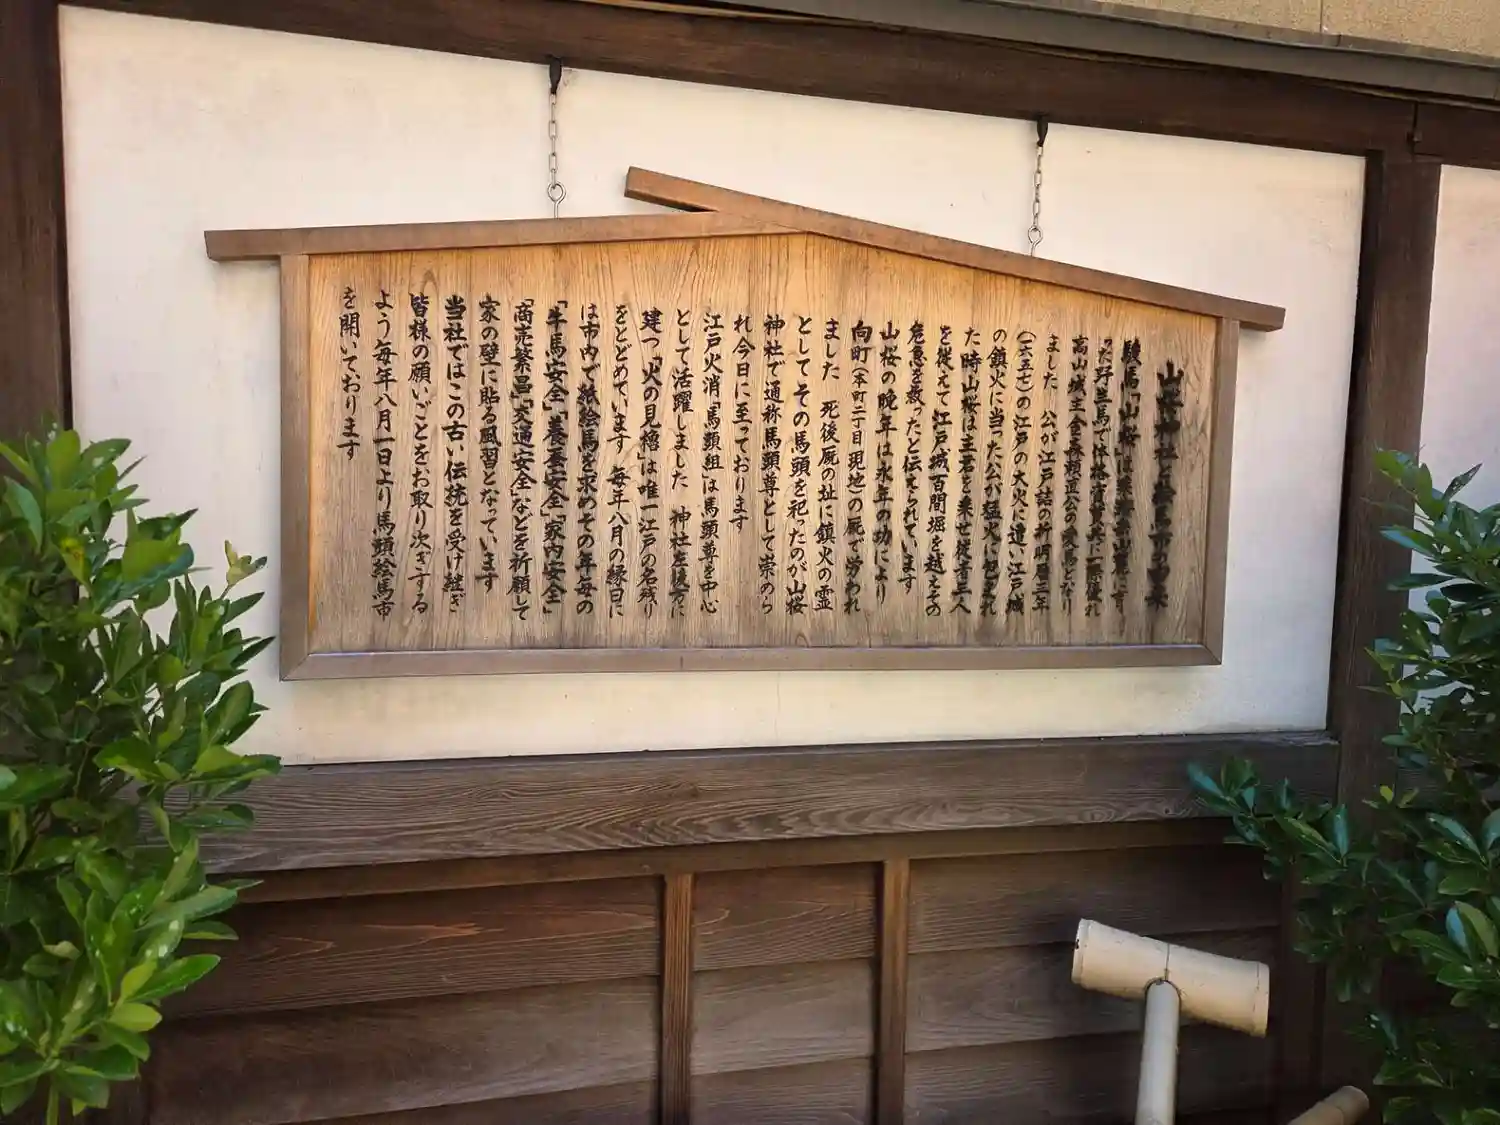 山桜神社と絵馬市の由来
駿馬「山桜」は乗鞍山麓にすま
った野生馬で体格資質共に一際優れ
高山城主金森頼直公の愛馬となり
ました　公が江戸詰の折明暦三年
(一六五七)の江戸の大火に遭い江戸城
の鎮火に当った公が猛火に包まれ
た時山桜は主君を乗せ従者三人
を従えて江戸城百間堀を越えその
危急を救ったと伝えられています
山桜の晩年は永年の功により
向町(本町二丁目現地)の厩で労われ
ました　死後厩の址に鎮火の霊
としてその馬頭を祀ったのが山桜
神社で通称馬頭尊として崇めら
れ今日に至っております
江戸火消「馬頭組」は馬頭尊を中心
として活躍しました　神社左後方に
建つ「火の見櫓」は唯一江戸の名残り
をとどめています　毎年八月の縁日に
は市内で紙絵馬を求めその年毎の
「牛馬安全」「養蚕安全」「家内安全」
「商売繁昌」「交通安全」などを祈願して
家の壁に貼る風習となっています
当社ではこの古い伝統を受け継ぎ
皆様の願いごとをお取り次ぎする
よう毎年八月一日より馬頭絵馬市
を開いております